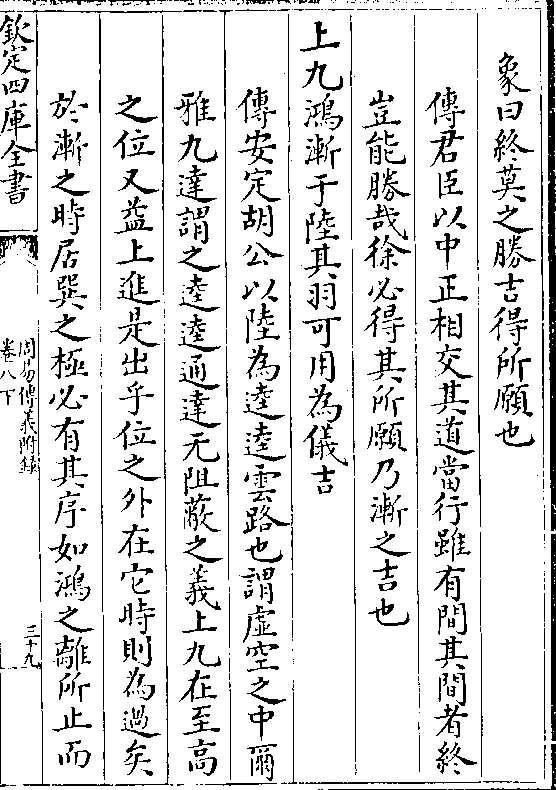 象曰終莫之勝吉得所願也
傳君臣以中正相交其道當行雖有間其間者終
豈能勝哉徐必得其所願乃漸之吉也
上九鴻漸于陸其羽可用為儀吉
傳安定胡公以陸為逵逵雲路也謂虛空之中爾
雅九達謂之逵逵通達无阻蔽之義上九在至高
之位又益上進是出乎位之外在它時則為過矣
於漸之時居巽之極必有其序如鴻之離所止而
欽定四庫全書
周易傳義附録
卷八下
三十九